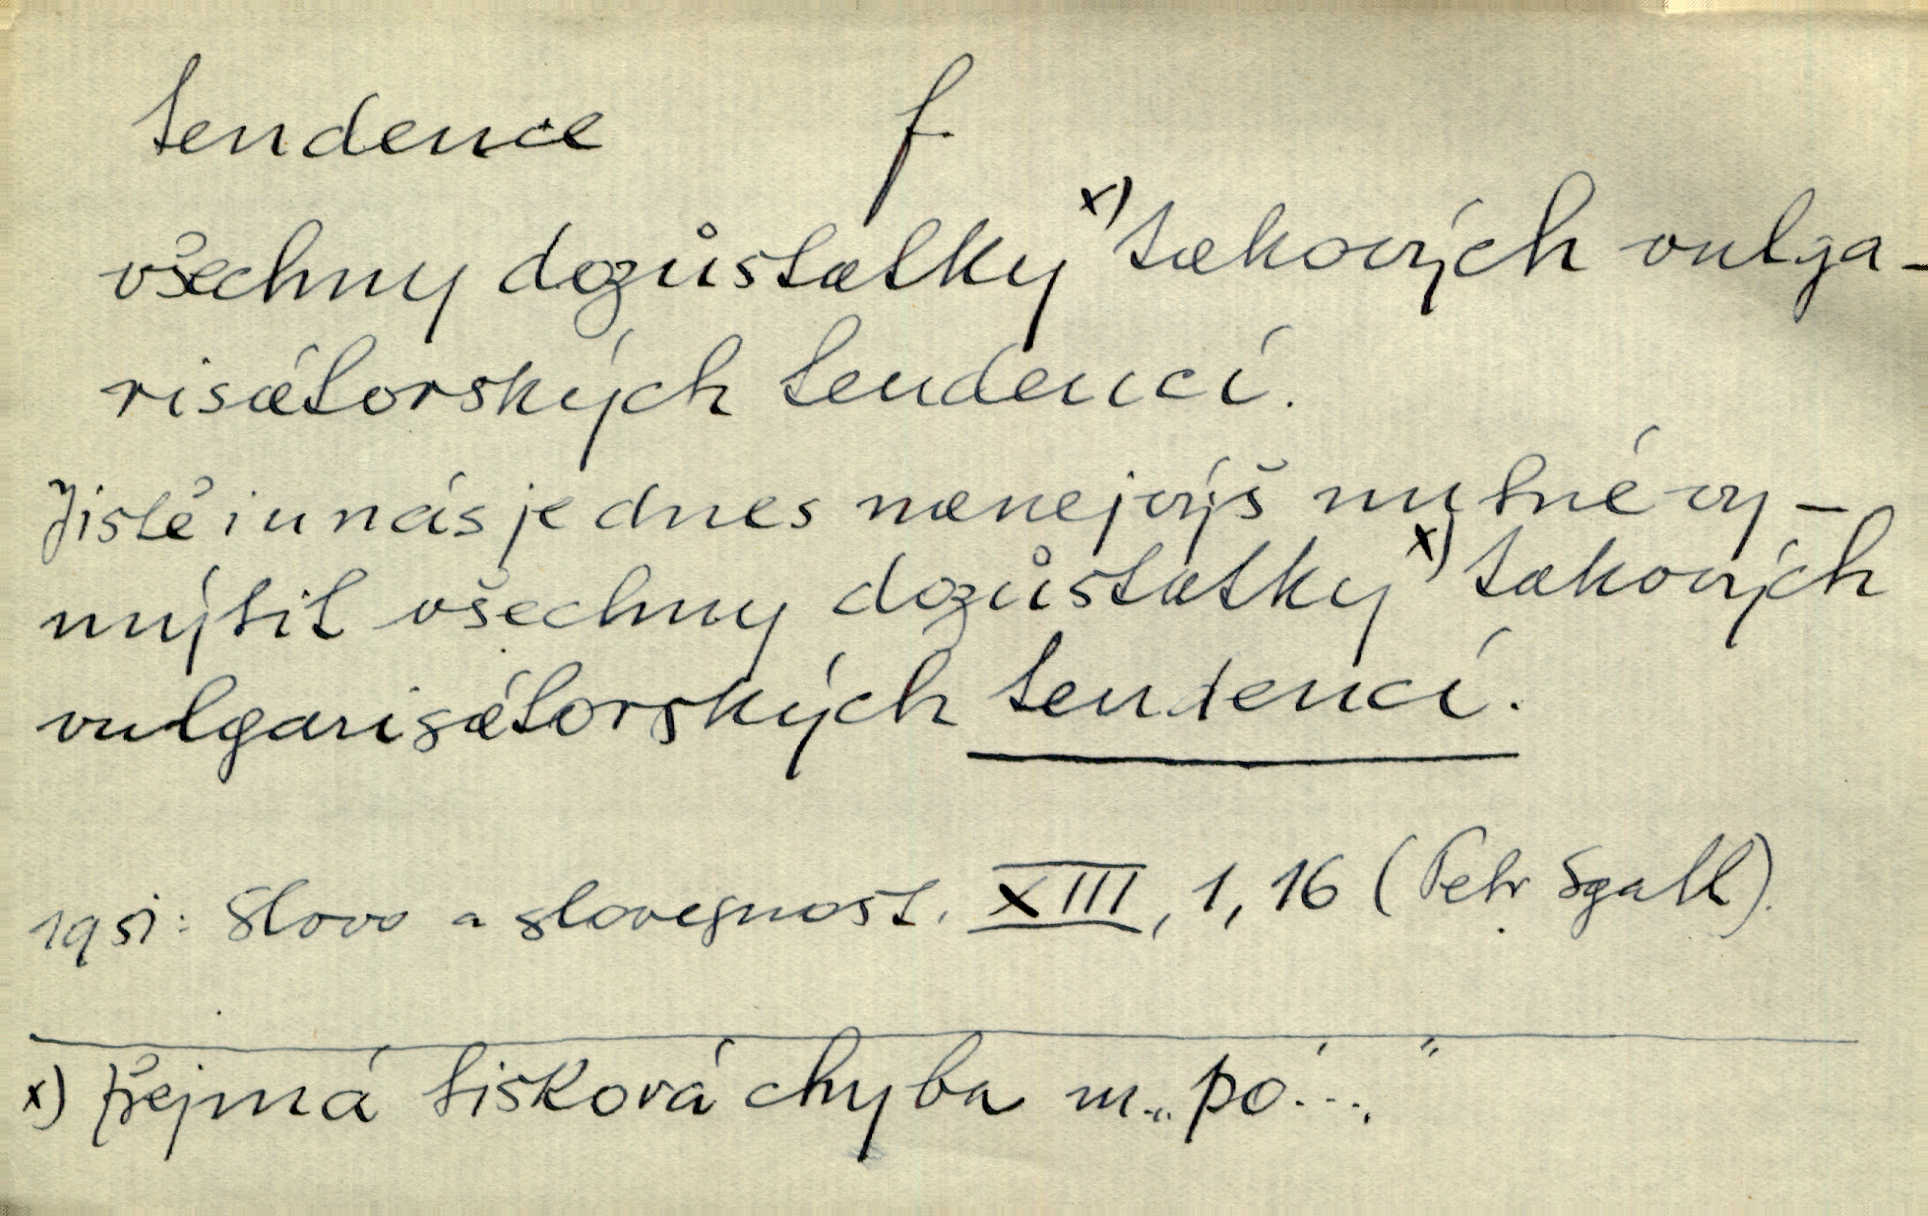 tendence f.
všechny dozůstatky x) takových vulga-
risátorských tendencí.
Jistě i u nás je dnes nanejvýš nutné vy-
mýtit všechny dozůstatky x) takových
vulgarisátorských tendencí.
1951: Slovo a slovesnost. XIII, 1, 16 (Petr Sgall).
x) zřejmá tisková chyba m. „po...."